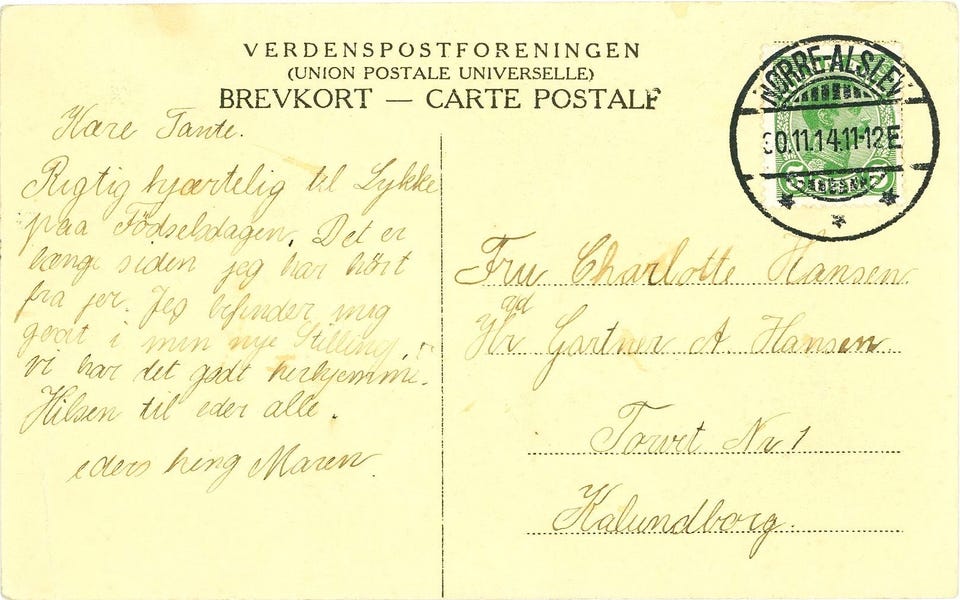 VERDENSPOSTFORENINGEN
(UNION POSTALE UNIVERSELLE)
BREVKORT — CARTE POSTALE
NØRRE-ALSLEV
30.11.14.11-12E
5 5
Kære Tante.
Rigtig hjærtelig til Lykke
paa Födselsdagen. Det er
længe siden jeg har hört
fra jer. Jeg befinder mig
godt i min nye Stilling,
vi har det godt herhjemme.
Hilsen til eder alle.
eders heng Maren.
Fru Charlotte Hansen
ad
Hr Gartner A Hansen
Torvet Nr 1
Kalundborg.